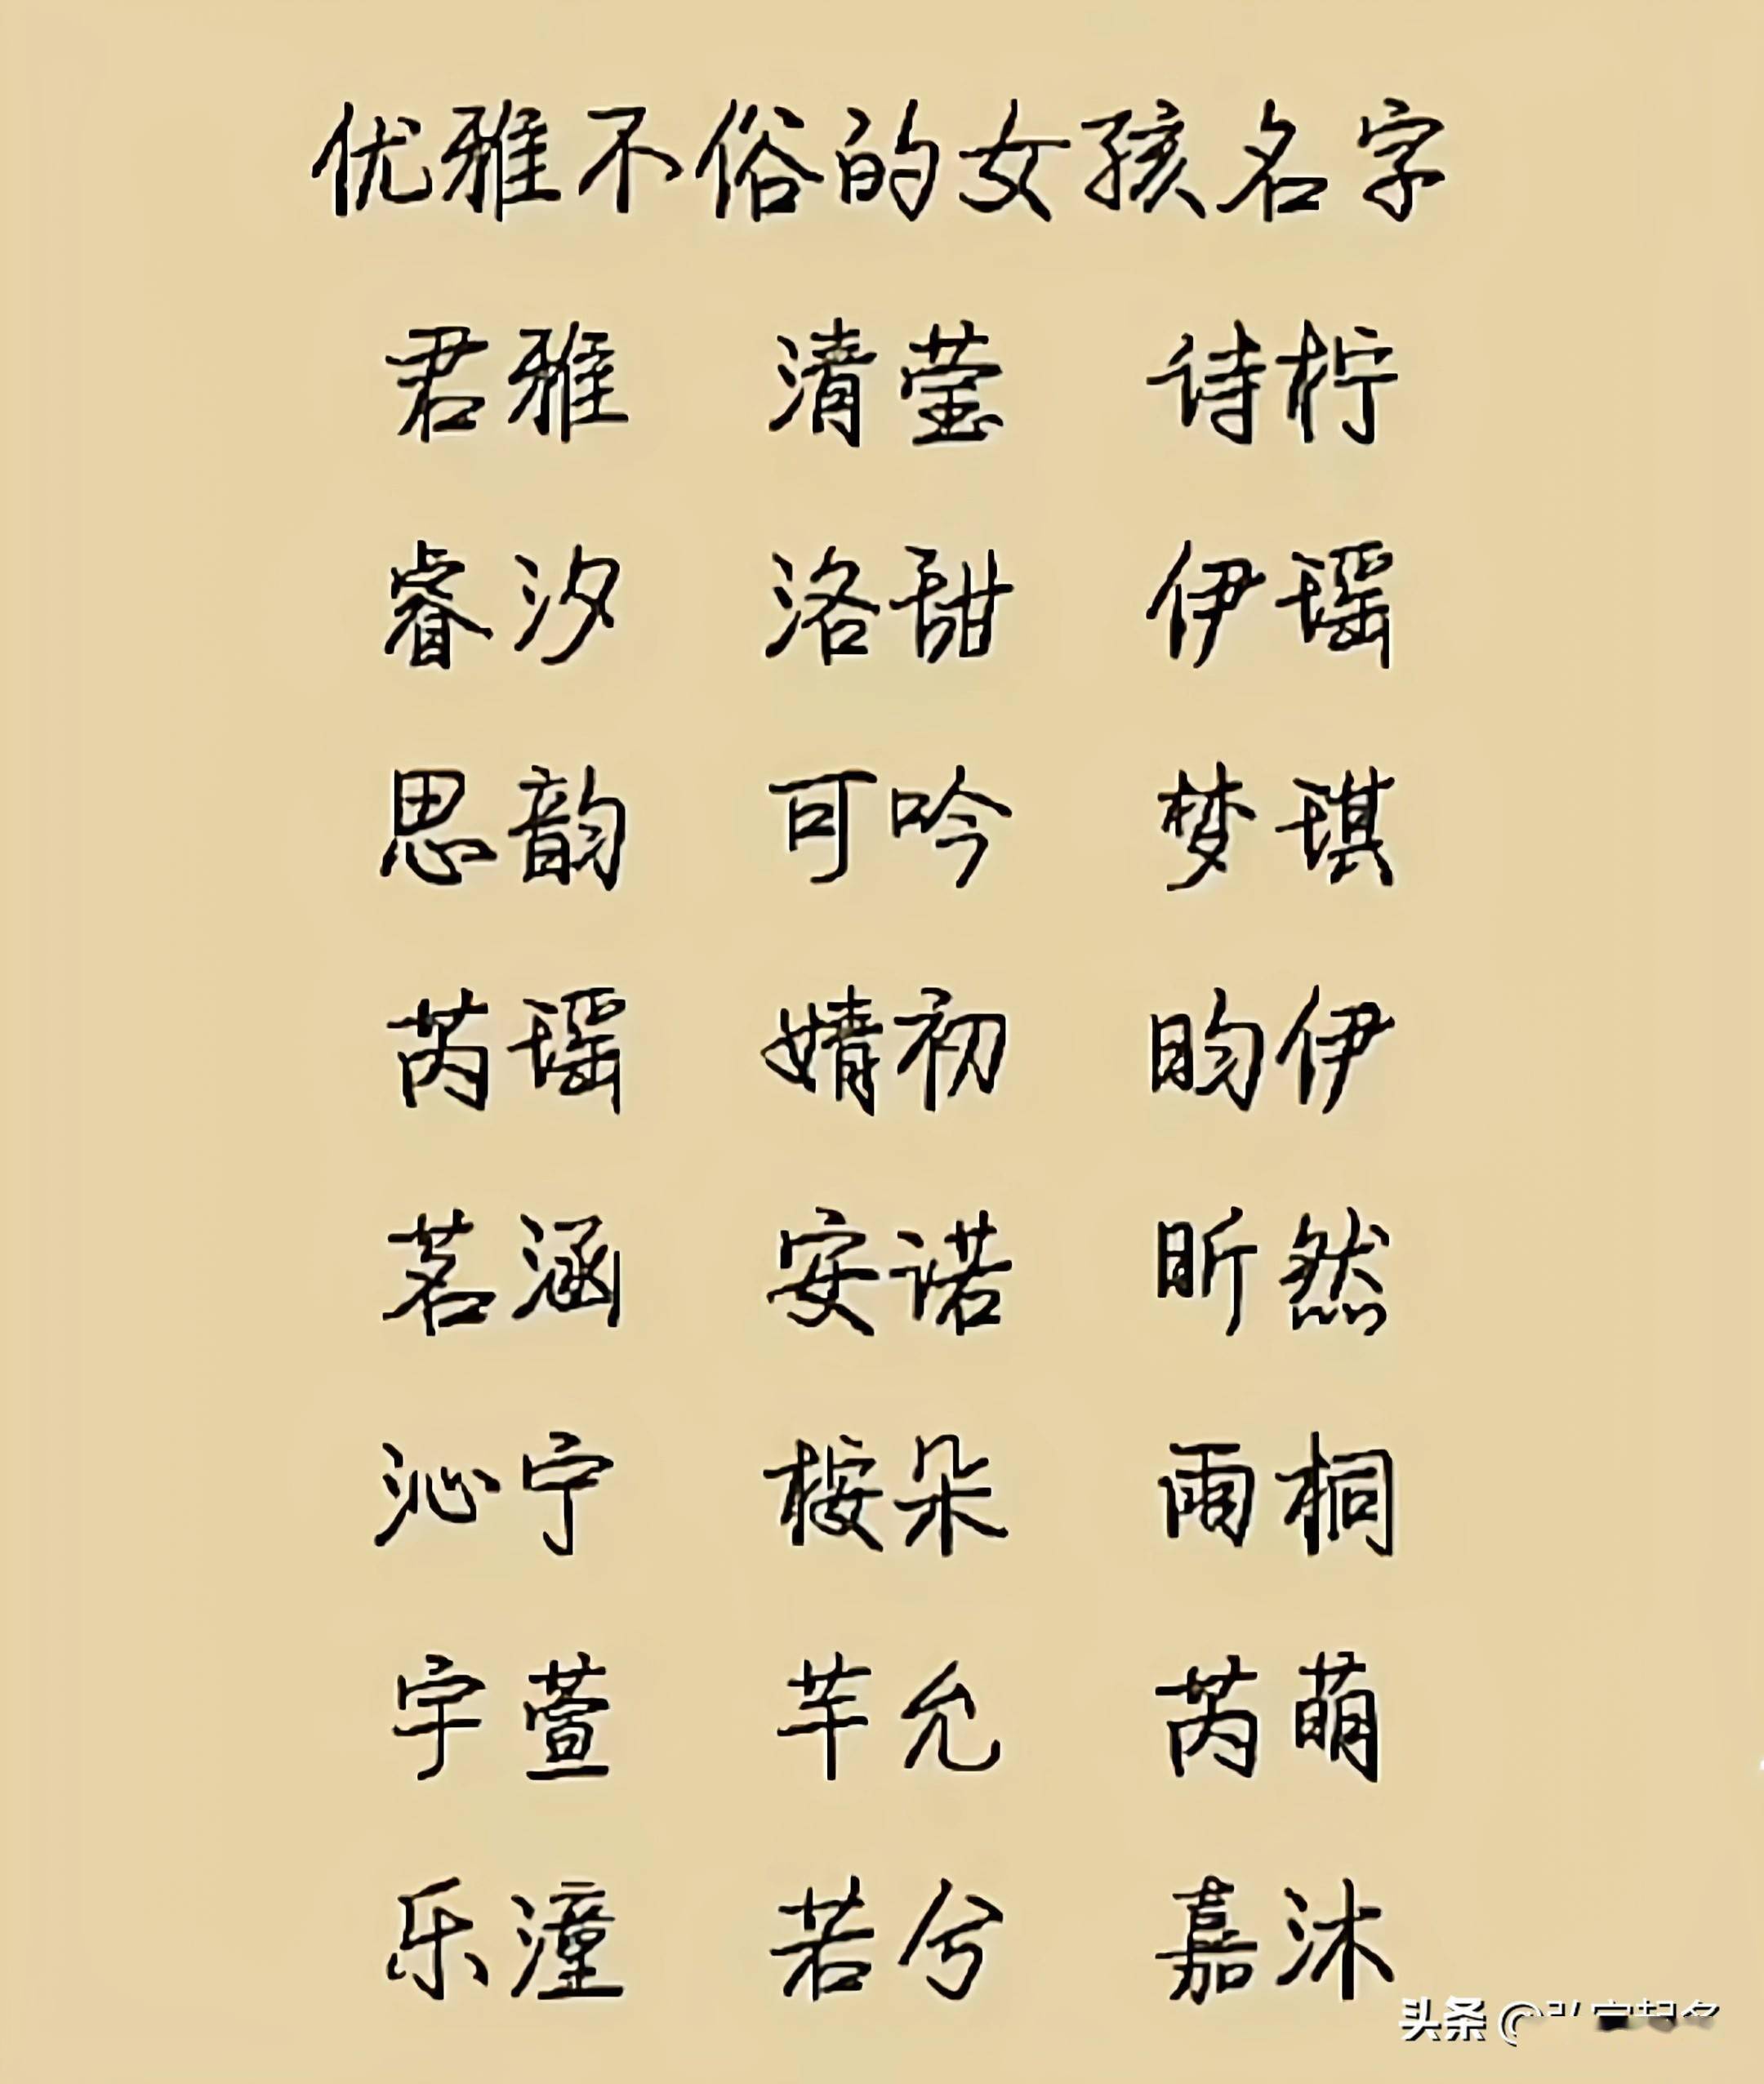 优雅不俗的女孩名字
君雅 清莹 诗柠
睿汐 洛甜 伊瑶
思韵 可吟 梦琪
芮瑶 婧初 昀伊
茗涵 安诺 昕然
沁宁 桉朵 雨桐
宇萱 芊允 芮萌
乐潼 若兮 嘉沐
头条 @